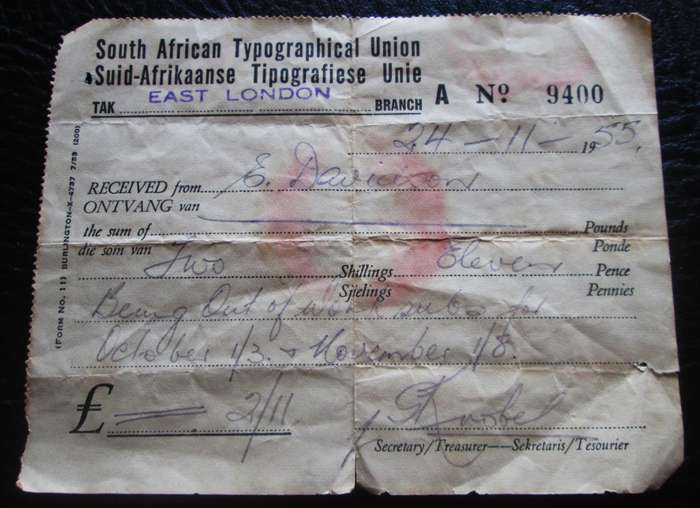 South African Typographical Union
Suid-Afrikaanse Tipografiese Unie
EAST LONDON
TAK BRANCH A No 9400
24-11-1955.
RECEIVED from E. Davidson
ONTVANG van
the sum of Pounds
die som van Ponde
Two Shillings Eleven Pence
Sjielings Pennies
Being Out of work subs for
October 1/3. & November 1/8.
£ 2/11
Secretary/Treasurer—Sekretaris/Tesourier
(FORM NO. 11) BURLINGTON-X-4737 7/53 (200)